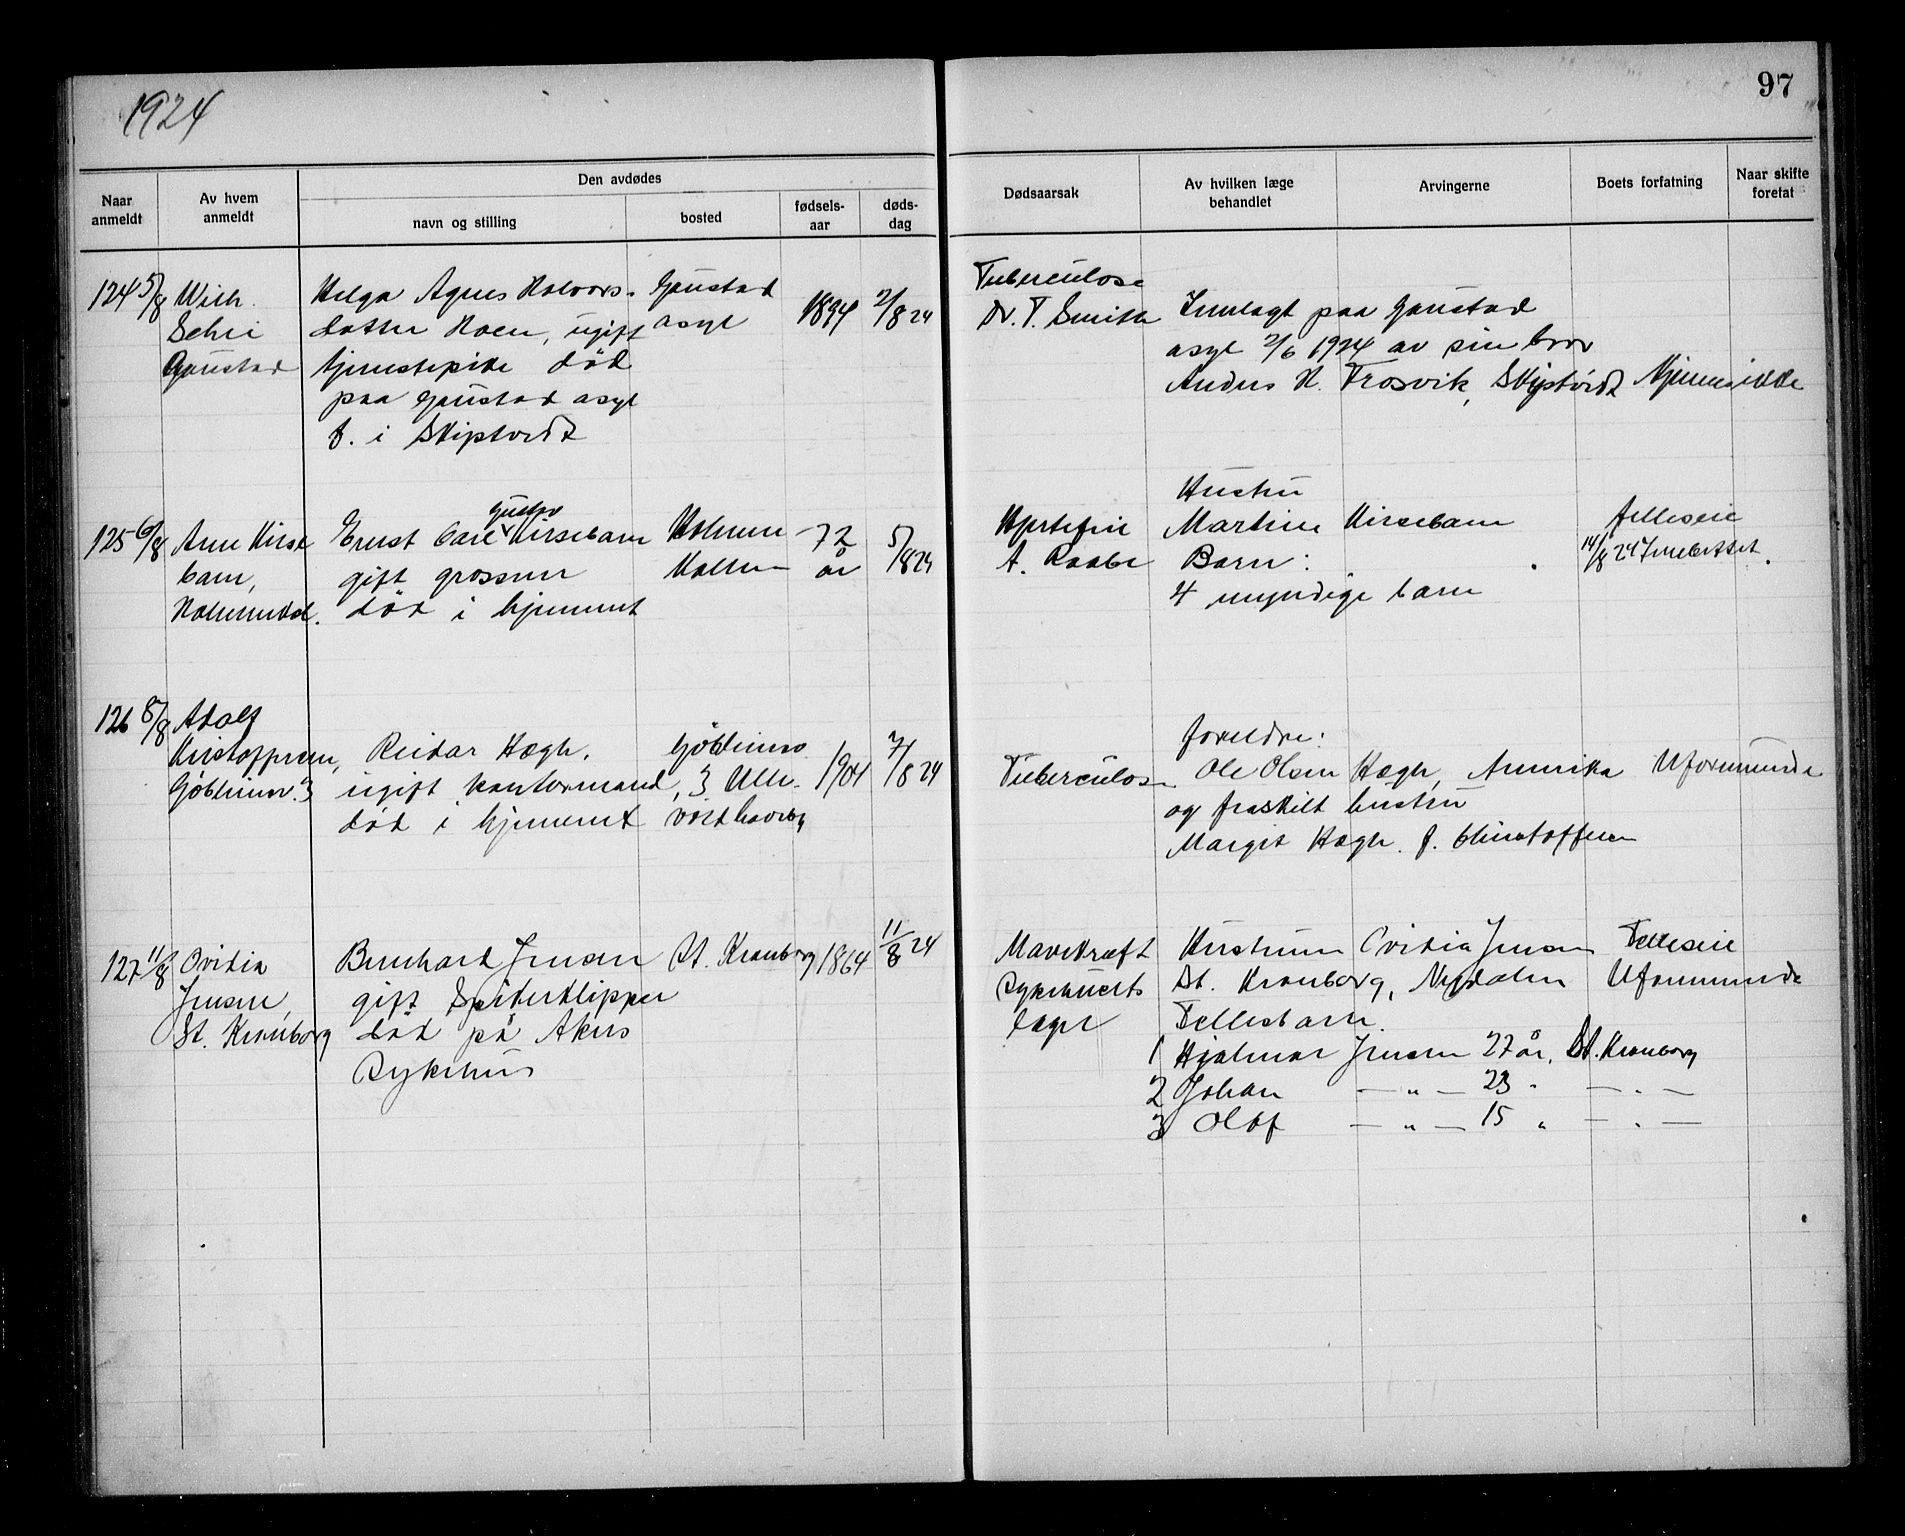 1924
97
Naar anmeldt
Av hvem anmeldt
Den avdødes
navn og stilling
bosted
fødsels-aar
døds-dag
Dødsaarsak
Av hvilken læge behandlet
Arvingerne
Boets forfatning
Naar skifte foretat
124 5/8 Wilh. Helga Agnes Halvors- Gaustad 1894 2/8 24 Tuberculose
datter Hoen, ugift asyl Dr. T. Smith Innlagt paa Gaustad
Gaustad tjenestepike død asyl 2/6 1924 av sin bror
paa Gaustad asyl Anders H. Trosvik, Skiptvedt Kjennes ikke
f. i Skiptvedt
125 6/8 Arne Kirse Ernst Carl Gustav Kirsebom Holmen 72 5/8 24 Hjertefeil Hustru
bom, gift grosserer Kollen år A. Raabe Martine Kirsebom felleseie
død i hjemmet Barn: 14/8 24
4 myndige barn
126 8/8 Adolf
Kristoffersen, Reidar Hægh, 1904 7/8 24 Tuberculose foreldre:
ugift kontormand, 3 Ulle- Ole Olsen Hægh, Annrika Uformuende
død i hjemmet vold haveby og fraskilt hustru
Margit Hægh f. Christoffersen
127 11/8 Ovidia Bernhard Jensen St. Kronborg 1864 11/8 24 Mavekræft Hustruen Ovidia Jensen Felleseie
Jensen, gift Spiderklipper Sykehuets St. Kronborg, Nydalen Uformuende
St. Kronborg død på Akers læger Fellesbarn.
Sykehus 1 Hjalmar Jensen 27 år, St. Kronborg
2 Johan — " — 23 " — " —
3 Olaf — " — 15 " — " —